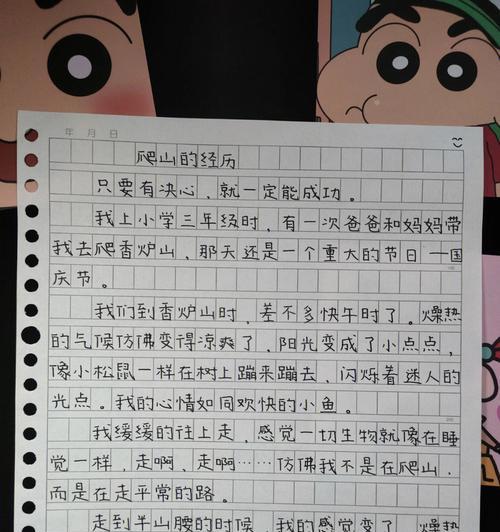 年 月 日
爬山的经历
只要有决心，就一定能成功。
我上小学三年级时，有一次爸爸和妈妈带
我去爬香炉山，那天还是一个重大的节日—国
庆节。
我们到香炉山时，差不多快午时了。燥热
的气候仿佛变得凉爽了，阳光变成了小点点，
像小松鼠一样在树上蹦来蹦去，闪烁着迷人的
光点。我的心情如同欢快的小鱼。
我缓缓的往上走，感觉一切生物就像在睡
觉一样，走啊、走啊……仿佛我不是在爬山，
而是在走平常的路。
走到半山腰的时候，我的感觉变了，燥